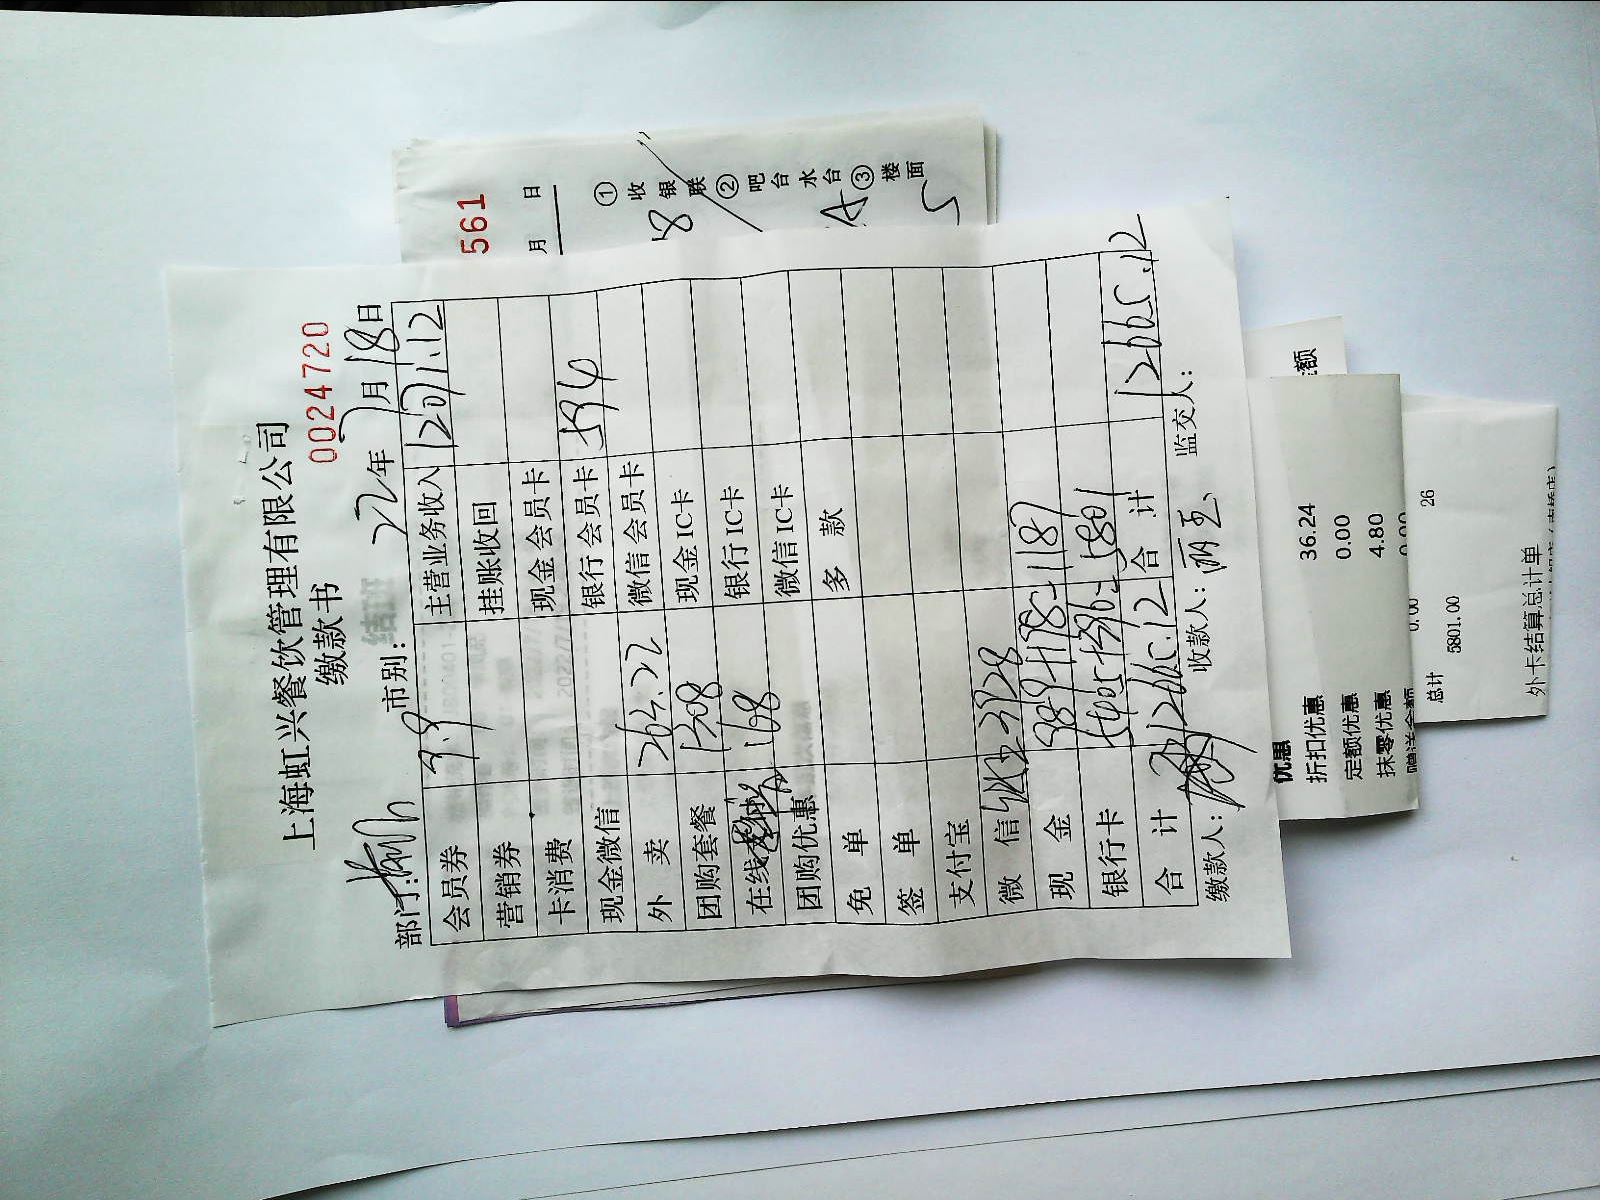 上海虹兴餐饮管理有限公司
缴款书 0024720
部门: 市别: 22年7月18日
会员券 主营业务收入 12071.12
营销券 挂账收回
卡消费 现金会员卡
现金微信 银行会员卡 594
外卖 264.22 微信会员卡
团购套餐 1508 现金IC卡
在线 168 银行IC卡
团购优惠 微信IC卡
免单 多款
签单
支付宝
微信 3728
现金 389+798=1187
银行卡 4405+1396=5801
合计 12665.12 合计 12665.12
缴款人: 收款人: 丽玉 监交人:
561
月 日
①收银联②吧台水台③楼面
优惠
折扣优惠 36.24
定额优惠 0.00
抹零优惠 4.80
赠送金额 0.00
0.00
总计 5801.00 26
外卡结算总计单